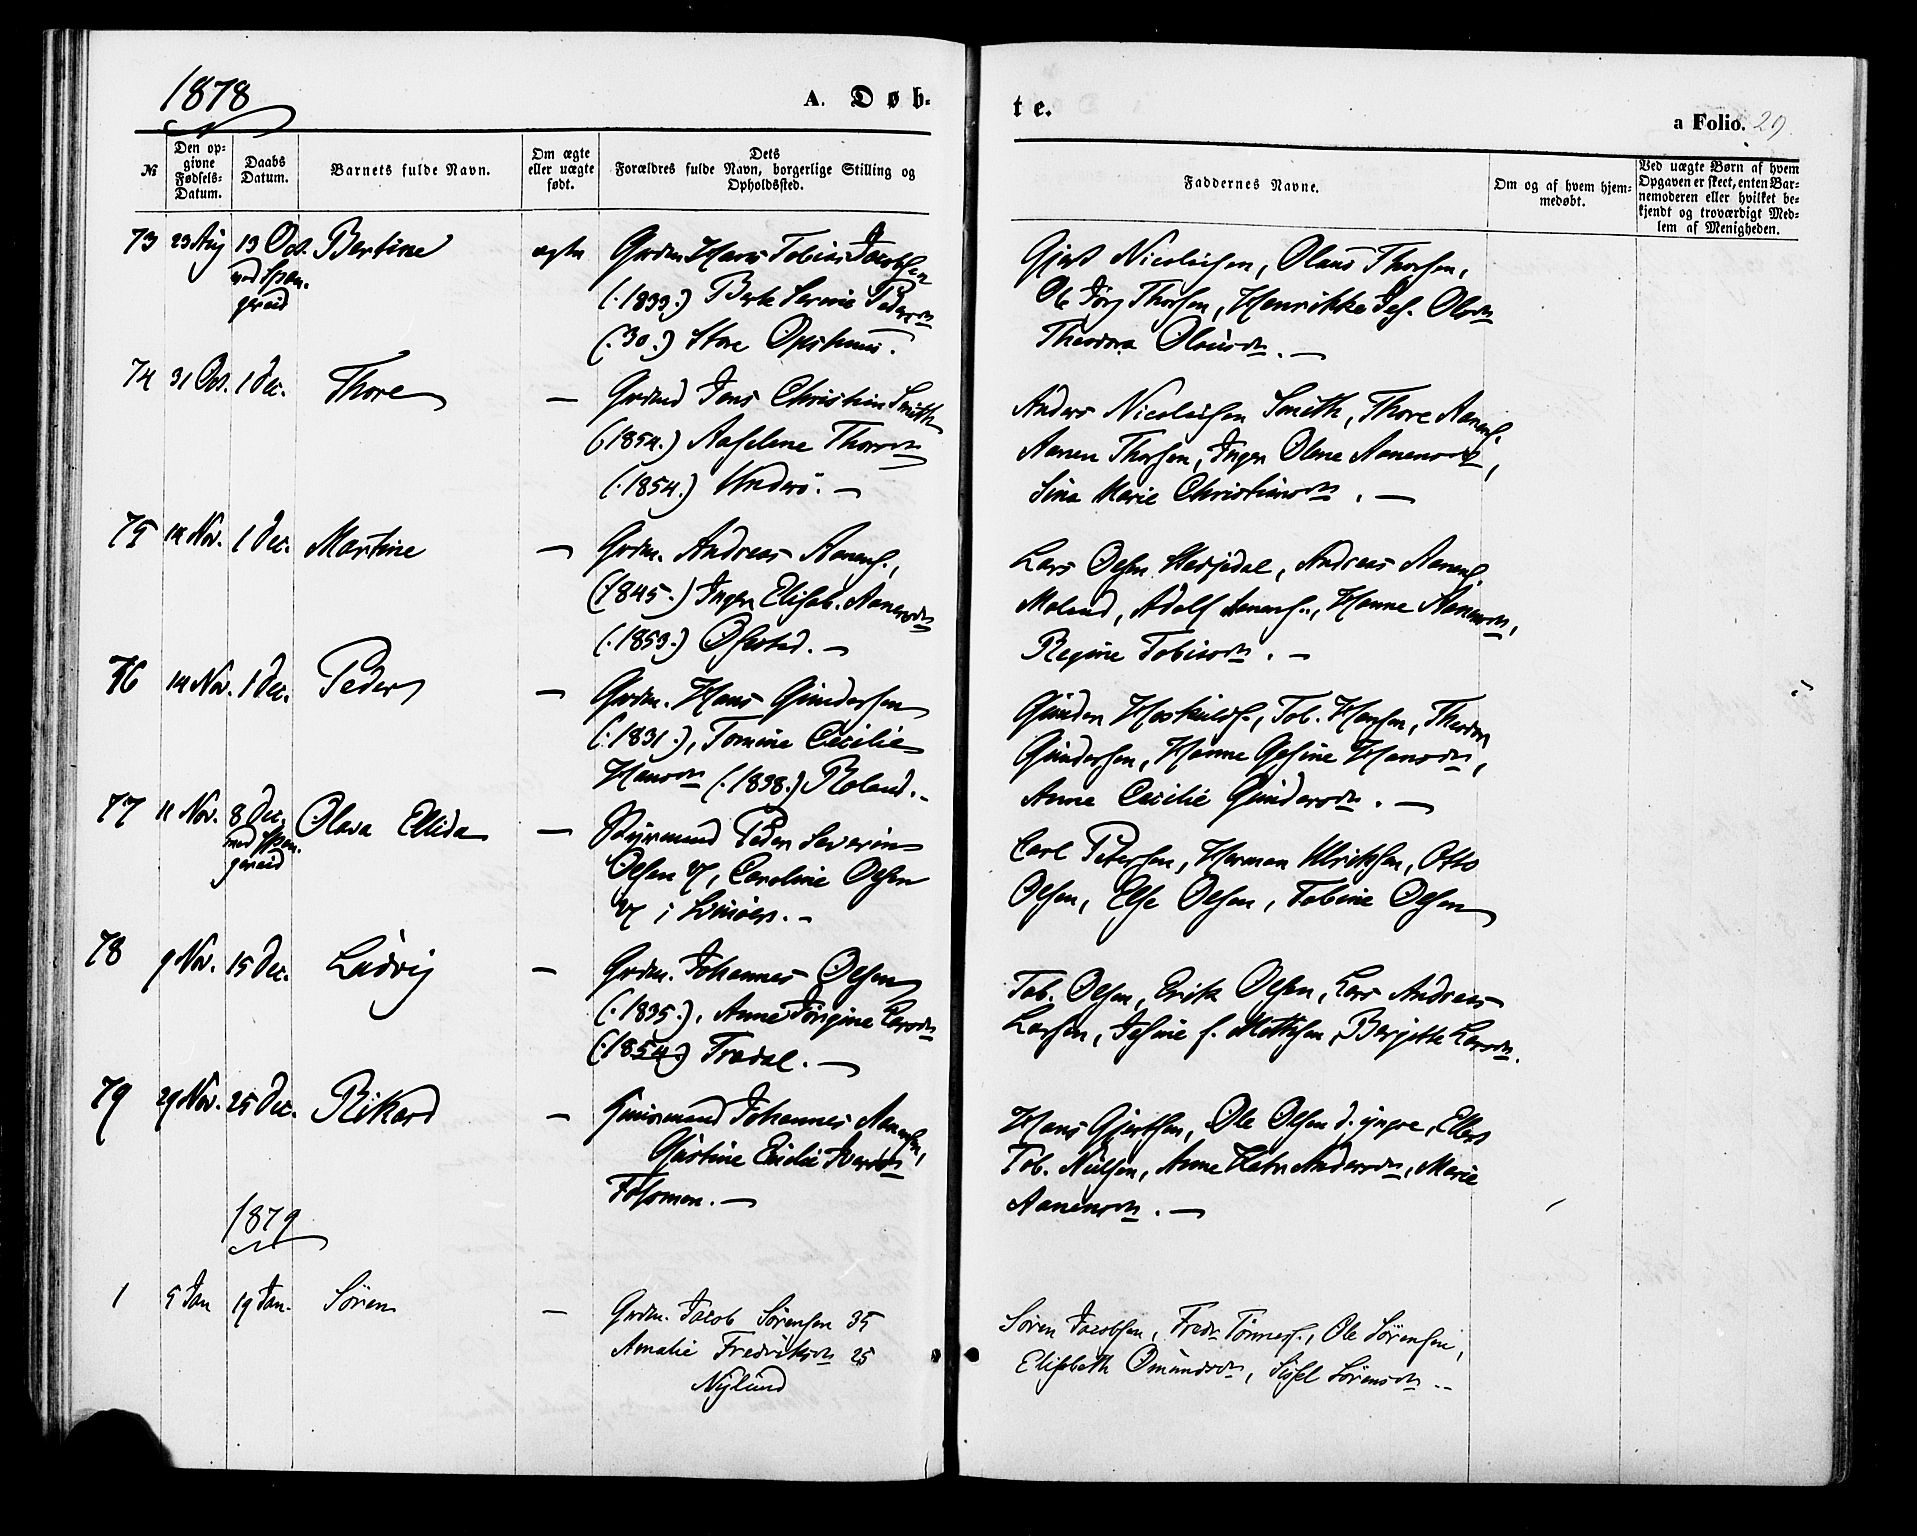 1878
A. Døb-
te.
a Folio. 29.
№
Den op-
givne
Fødsels-
Datum.
Daabs
Datum.
Barnets fulde Navn.
Om ægte
eller uægte
født.
Dets
Forældres fulde Navn, borgerlige Stilling og
Opholdssted.
Faddernes Navne.
Om og af hvem hjem-
medøbt.
Ved uægte Børn af hvem
Opgaven er skeet, enten Bar-
nemoderen eller hvilket be-
kjendt og troværdigt Med-
lem af Menigheden.
73 23 Aug 13 Oct. Bertine ægte Grdm. Hans Tobias Jacobsen
ved Span-
gereid
(. 1833.) Berte Serine Pedersdtr
(. 30.) Store Opshuus.
Gjert Nicolaisen, Olaus Thorsen,
Ole Jørg Thorsen, Henrikke Jes. Olsdtr
Theodora Olausdtr. —
74 31 Oct. 1 Dec. Thore — Grdmd Jens Christian Smith
(1854.) Aaselene Thorsdtr
(. 1854.) Underø. —
Anders Nicolaisen Smith, Thore Aanens.
Aanen Thorsen, Inger Oline Aanensdtr,
Sina Marie Christiansdtr. —
75 14 Nov. 1 Dec. Martine — Grdm. Andreas Aanens.,
(1845.) Inger Elisab. Aanensdtr
(. 1853.) Øfsted. —
Lars Olsen, Andreas Aanens.
Moland, Adolf Aanens., Hanne Aanensdtr,
Regine Tobiasdtr. —
76 14 Nov. 1 Dec. Peder — Grdm. Hans Gundersen
(. 1831.), Tomine Cecilie
Hansdtr (. 1838.) Roland. -
Gunder Hoskulds., Tob. Hansen, Theodor
Gundersen, Hanne Gesine Hansdtr,
Anne Cecilie Gundersdtr. —
77 11 Nov. 8 Dec. Olava Ellida — Peder Severin
ved Span-
gereid
Olsen og Caroline Olsen
i
Carl Petersen, Herman Ulriksen, Otto
Olsen, Else Olsen, Tobine Olsen
78 9 Nov. 15 Dec. Ludvig — Grdm. Johannes Olsen
(. 1835.), Anne Jørgine Larsdtr
(. 1854.) Trædal. —
Tob. Olsen, Erik Olsen, Lars Andreas
Larsen, Jesine f. Mathsen, Bergitte Larsdtr.
79 29 Nov. 25 Dec. Rikard — Huusmand Johannes Aanensen,
Gustine Emilie Iversdtr
Fossomen. —
Hans Gjertsen, Ole Olsen d. yngre, Ellert
Tob. Nielsen, Anne Kathr Andersdtr, Marie
Aanensdtr. —
1879
1 5 Jan 19 Jan. Søren — Grdm. Jacob Sørensen 35
Amalie Fredriksdtr 25
Nylund
Søren Jacobsen, Fredr Tønnes., Ole Sørensen,
Elisabeth Omundsdtr, Sissel Sørensdtr. -